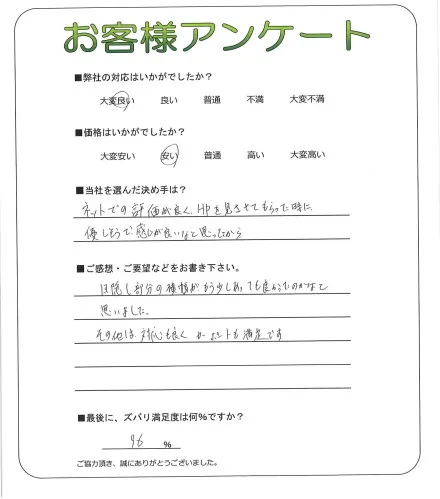 お客様アンケート
■弊社の対応はいかがでしたか？
大変良い 良い 普通 不満 大変不満
■価格はいかがでしたか？
大変安い 安い 普通 高い 大変高い
■当社を選んだ決め手は？
ネットでの評価が良く、HPを見させてもらった時に、
優しそうで感じが良いなと思ったから
■ご感想・ご要望などをお書き下さい。
目隠し部分の横幅がもう少しあっても良かったのかなと
思いました。
その他は対応も良く カーポートも満足です
■最後に、ズバリ満足度は何%ですか？
96 %
ご協力頂き、誠にありがとうございました。